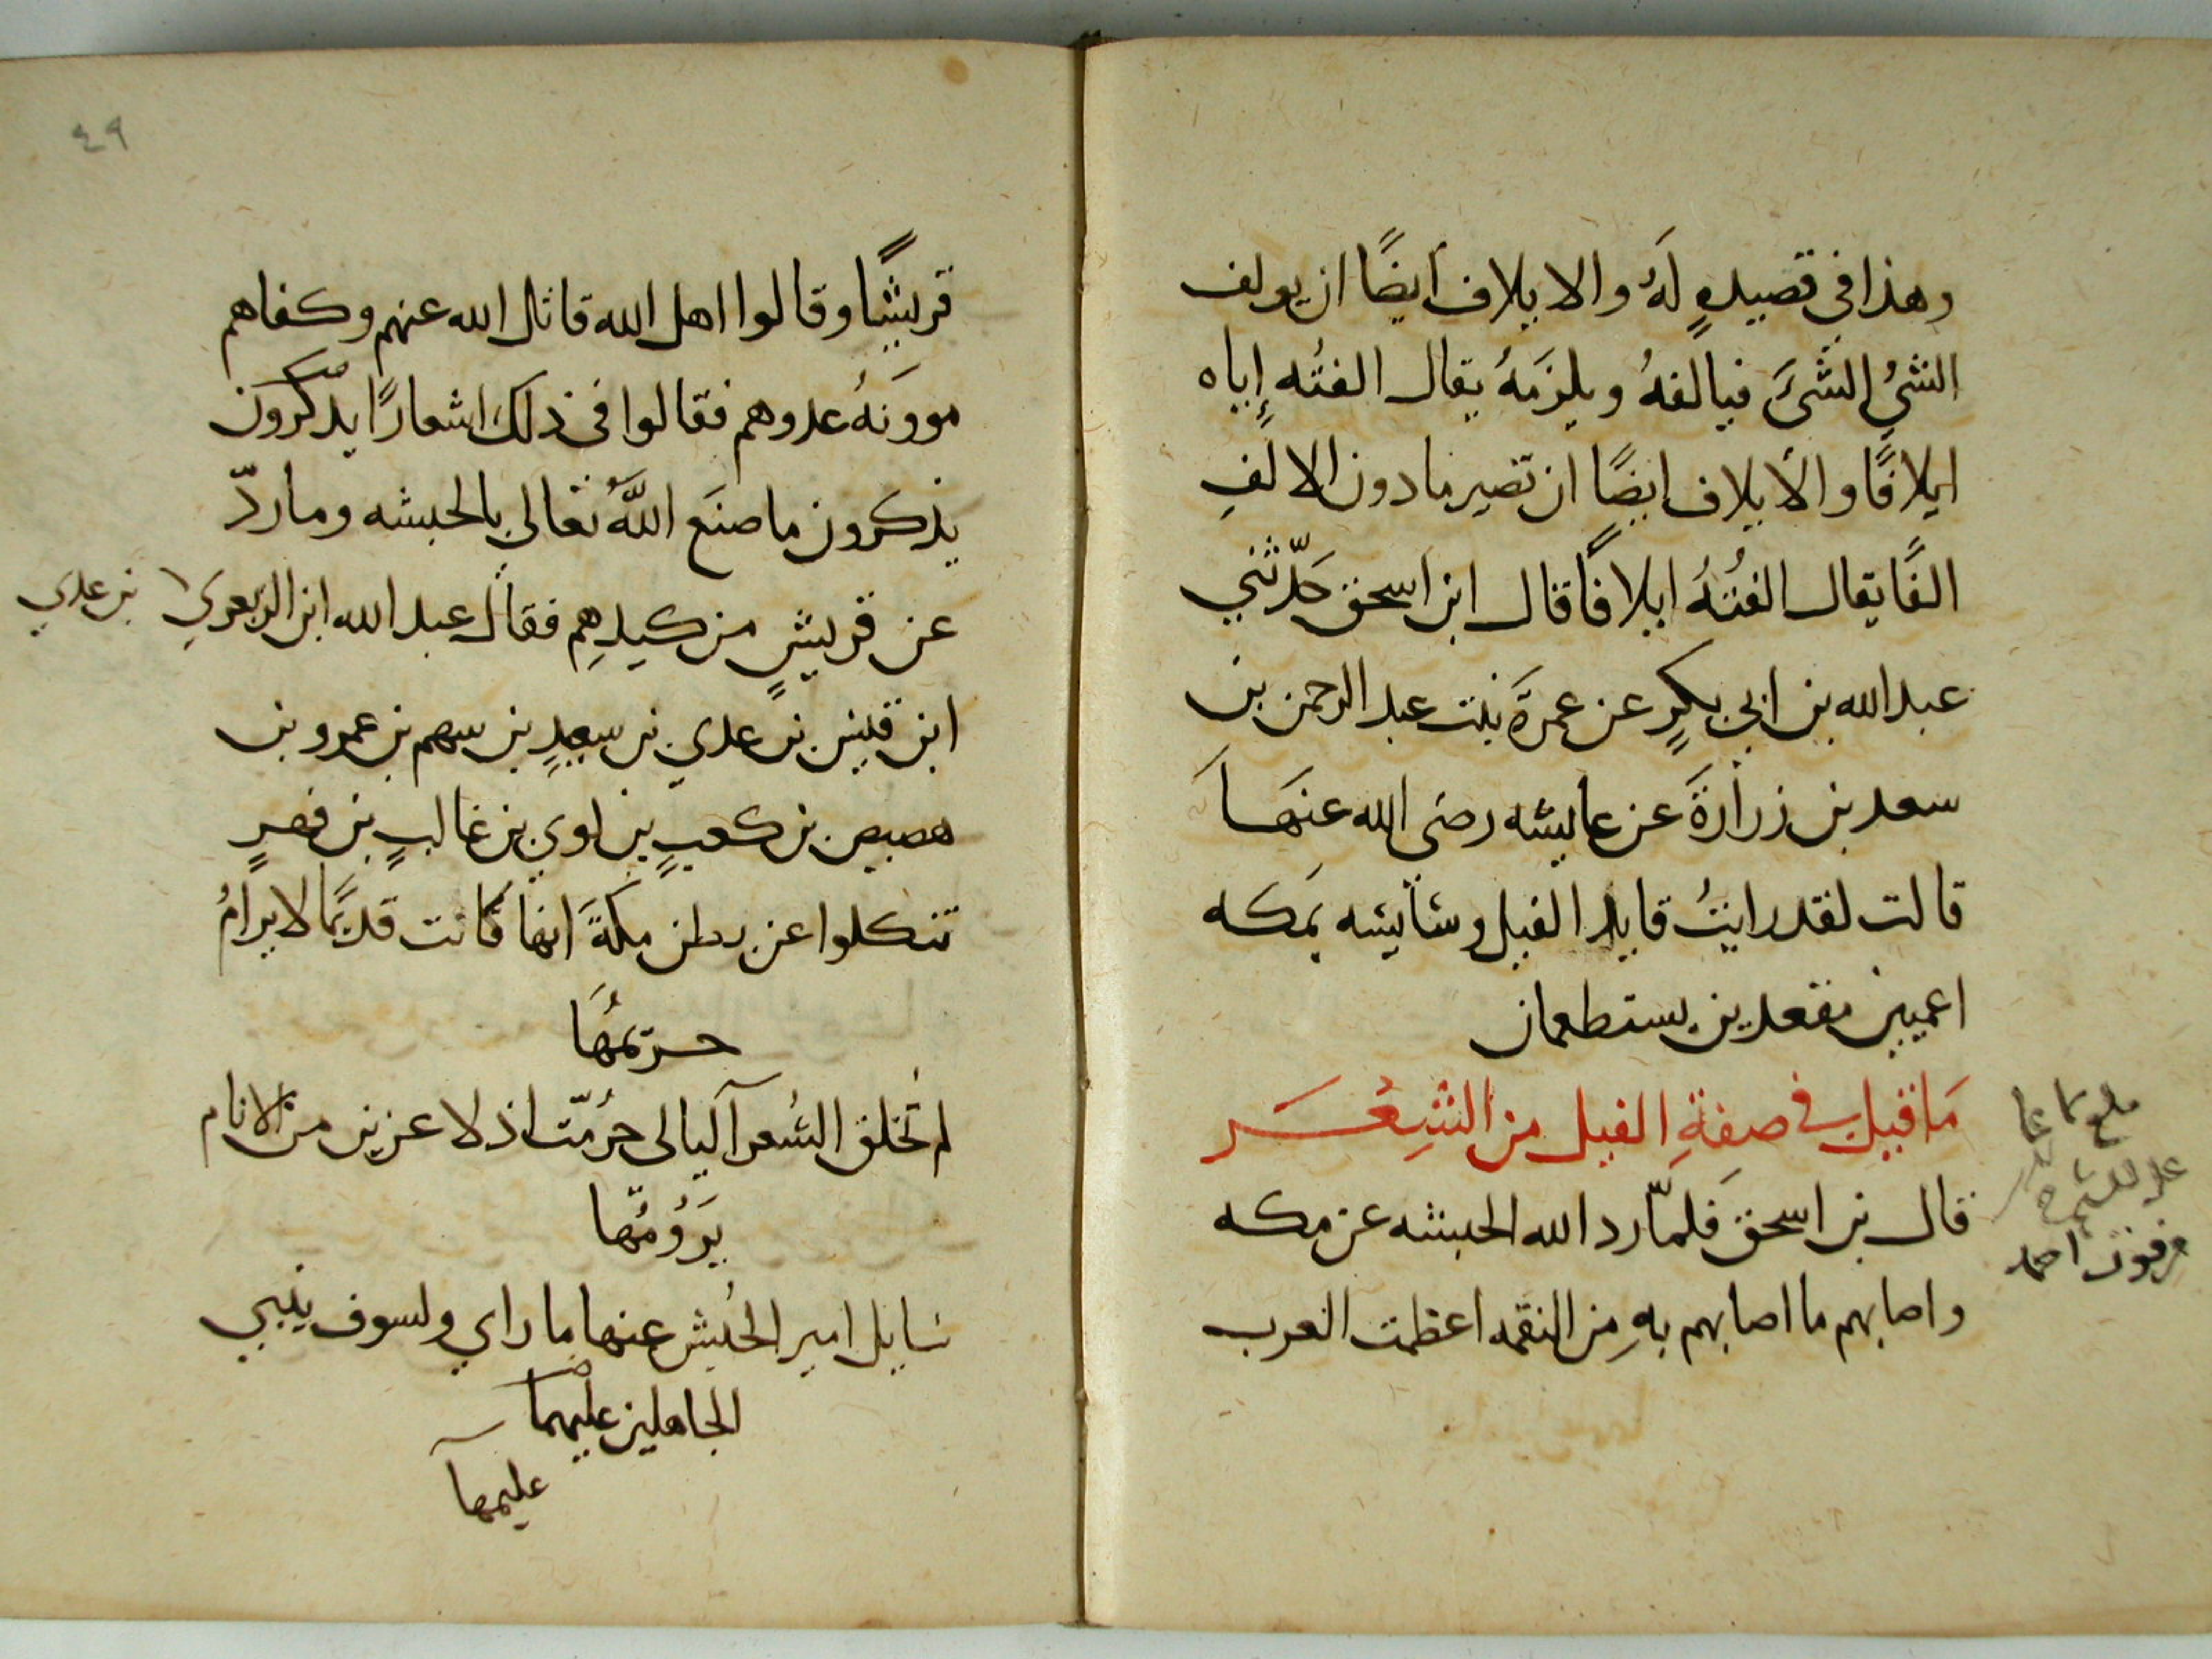 وهذا في قصيدةٍ لَهُ والايلاف أيضًا ان يولف
الشيُ الشيَ فيالفهُ ويلزَمهُ يقال الفتُه إياه
ايلافًا والايلاف ايضًا ان تصير مادون الالفِ
الفًا يقال الفتُهُ ايلافًا قال ابن اسحق حَدّثني
عبدالله بن ابي بكرٍ عن عمرَة بنت عبد الرحمن بن
سعد بن زرارةَ عن عايشه رضي الله عنهَا
قالت لقد رايتُ قايد الفيل وسايسه بمكه
اعميين مقعدين يستطعمان
مَا قيل في صفةِ الفيل من الشِعْر
قال بن اسحق فَلمّا رد الله الحبشه عن مكه
واصابهم ما اصابهم بهِ مِن النقمه اعظمت العرب
احمد
٤٩
قريشًا وقالوا اهل الله قاتل الله عنهم وكفاهم
موونَهُ عدوهم فقالوا في ذلك اشعارًا يذكرون
يذكرون ما صنَع اللَّهُ تعالي بالحبشه وما ردّ
عن قريشٍ من كيدِهِم فقال عبد الله ابن الزبعري
بن عدي
ابن قيس بن عدي بن سعدٍ بن سهم بن عمرو بن
هصيص بن كعبٍ بن لوي بن غالبٍ بن فهرٍ
تنكلوا عن بطن مكةَ انها كَانت قديمًا لا يرامُ
حريمُهَا
لم تُخلق الشعرآ ليالي حُرمّت اذ لا عزيز من الانام
يَرُومُها
سايل امير الحُبش عنها ما راي ولسوف ينبي
الجاهلين عليمها
عليمها